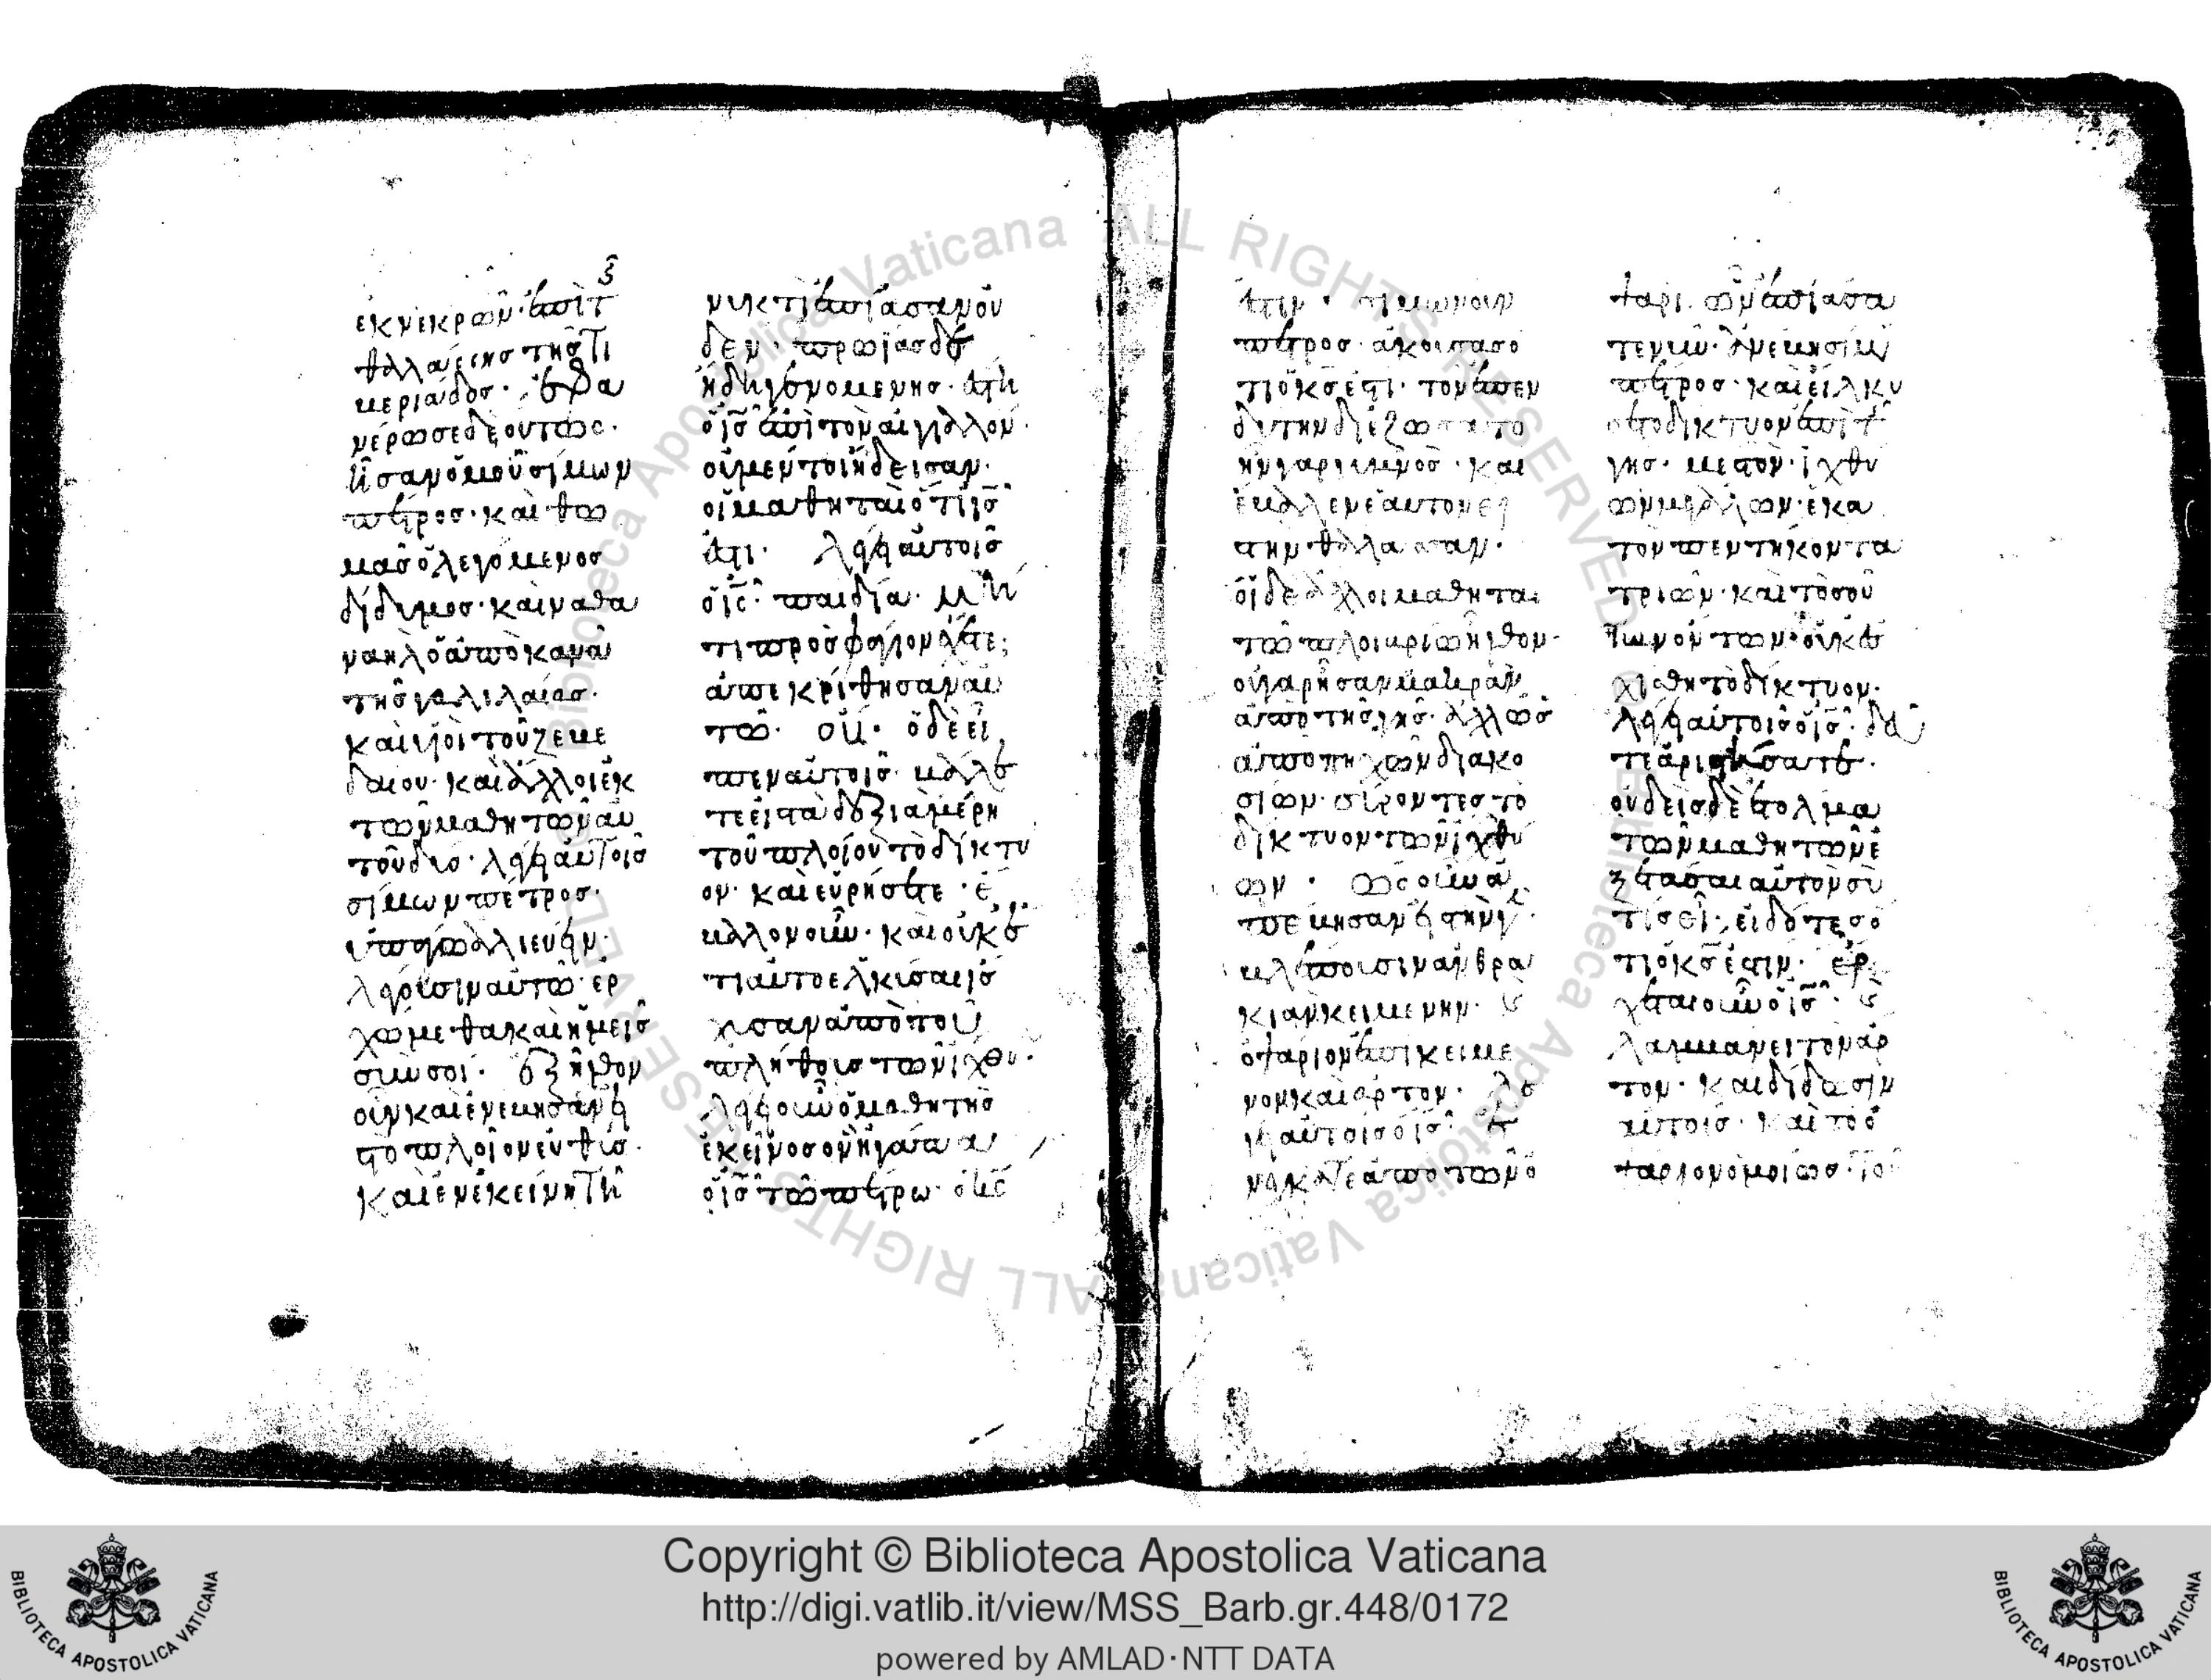 ἐκ νεκρῶν· ἐπὶ τ
θαλάσσης τῆς τι
μεριάδος· ἐφα
νέρωσε δὲ οὕτως·
ἦσαν ὁμοῦ σίμων
πέτρος· καὶ θω
μᾶς ὁ λεγόμενος
δίδυμος· καὶ ναθα
ναὴλ ὁ ἀπὸ κανᾶ
τῆς γαλιλαίας·
καὶ υἱοὶ τοῦ ζεβε
δαίου· καὶ ἄλλοι ἐκ
τῶν μαθητῶν αὐ
τοῦ δύο· λέγει αὐτοῖς
σίμων πέτρος·
ὑπάγω ἁλιεύειν·
λέγουσιν αὐτῶ· ἐρ
χόμεθα καὶ ἡμεῖς
σὺν σοί· ἐξῆλθον
οὖν καὶ ἐνέβησαν εἰ
ς τὸ πλοῖον εὐθὺς·
καὶ ἐν ἐκείνη τῆ
νυκτὶ ἐπίασαν οὐ
δέν· πρωΐας δὲ
ἤδη γενομένης· ἔστη
ὁ ις ἐπὶ τὸν αἰγιαλόν·
οὐ μέντοι ἤδεισαν·
οἱ μαθηταὶ ὅτι ις
ἐστι· λέγει αὐτοῖς
ὁ ις· παιδία· μή
τι προσφάγιον ἔχετε;
ἀπεκρίθησαν αὐ
τῶ· οὔ· ὁ δὲ εἶ
πεν αὐτοῖς· βάλε
τε εἰς τὰ δεξιὰ μέρη
τοῦ πλοίου τὸ δίκτυ
ον· καὶ εὑρήσετε· ἔ
βαλον οὖν· καὶ οὐκέ
τι αὐτὸ ἑλκῦσαι ἴσ
χυσαν ἀπὸ τοῦ
πλήθους τῶν ἰχθύ·
λέγει οὖν ὁ μαθητὴς
ἐκεῖνος ὃν ἠγάπα
ὁ ις τῶ πέτρω· ὁ κς
ἐστιν· σίμων οὖν
πέτρος· ἀκούσας ὅ
τι ὁ κς ἐστι· τὸν ἐπεν
δύτην διεζώσατο
ἦν γὰρ γυμνός· καὶ
ἔβαλεν ἑαυτὸν εἰς
τὴν θάλασσαν·
οἱ δὲ ἄλλοι μαθηταὶ
τῶ πλοιαρίω ἦλθον·
οὐ γὰρ ἦσαν μακρὰν
ἀπὸ τῆς γῆς· ἀλλ' ὡς
ἀπὸ πηχῶν διακο
σίων· σύροντες τὸ
δίκτυον τῶν ἰχθύ
ων· ὡς οὖν ἀ
πέβησαν εἰς τὴν γῆν·
βλέπουσιν ἀνθρα
κιὰν κειμένην· καὶ
ὀψάριον ἐπικείμε
νον καὶ ἄρτον· λέ
γει αὐτοῖς ὁ ις·
ἐνέγκατε ἀπὸ τῶν ὀ
ψαρίων ὧν ἐπιάσα
τε νῦν· ἀνέβη σίμων
πέτρος· καὶ εἵλκυ
σε τὸ δίκτυον ἐπὶ τῆς
γῆς· μεστὸν· ἰχθύ
ων μεγάλων· ἑκα
τὸν πεντήκοντα
τριῶν· καὶ τοσού
των ὄντων· οὐκ ἐ
σχίσθη τὸ δίκτυον·
λέγει αὐτοῖς ὁ ις· δεῦ
τε ἀριστήσατε·
οὐδεὶς δὲ ἐτόλμα
τῶν μαθητῶν ἐ
ξετάσαι αὐτὸν σὺ
τίς εἶ· εἰδότες ὅ
τι ὁ κς ἐστιν· ἔρ
χεται οὖν ὁ ις· καὶ
λαμβάνει τὸν ἄρ
τον· καὶ δίδωσιν
αὐτοῖς· καὶ τὸ ὀ
ψάριον ὁμοίως· τοῦ
Copyright © Biblioteca Apostolica Vaticana
http://digi.vatlib.it/view/MSS_Barb.gr.448/0172
powered by AMLAD·NTT DATA
BIBLIOTECA APOSTOLICA VATICANA
BIBLIOTECA APOSTOLICA VATICANA